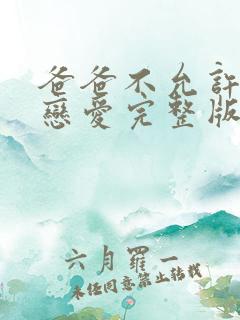 爸爸不允許
戀愛完整版
六月羅一
未經同意禁止轉載